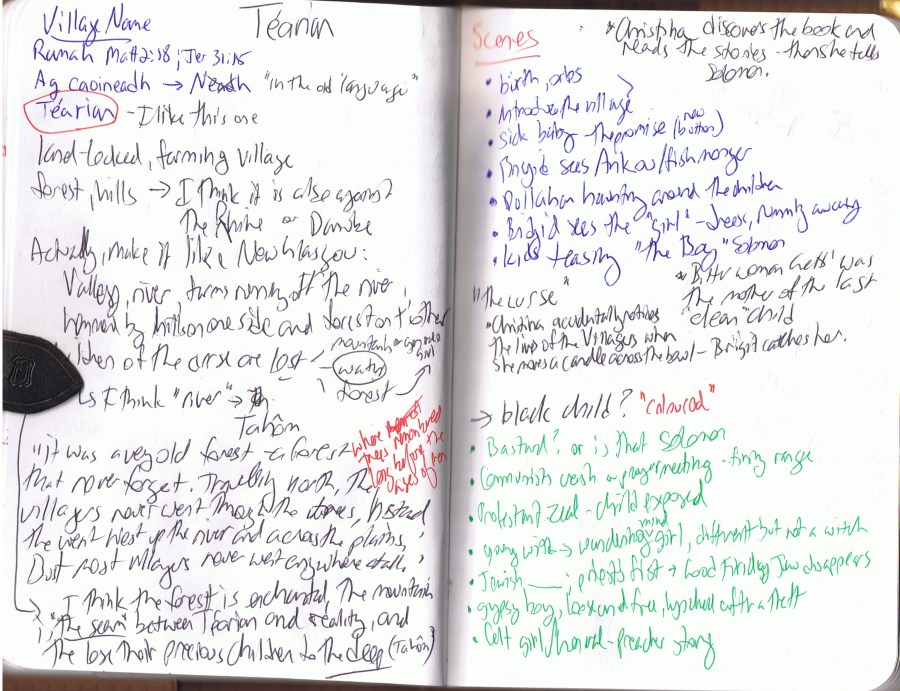 Village Name
Téarian
Ramah Matt 2:18; Jer 31:15
Ag caoineadh → Neath "in the old language"
Téarian - I like this one
land-locked, farming village
forest, hills → I think it is also against
the Rhine or Danube
Actually, make it like New Glasgow:
Valley, river, farms running off the river,
hemmed by hills on one side and forest on t'other
children of the curse are lost -
mountain
water
forest
girl
Is I think "river" →
Tahôm
"it was a very old forest - a forest
where
trees remembered
long before the
of men
that never forget. Travelling north, the
villagers never went through the trees, instead
the went west up the river and across the plains,
But most villagers never went anywhere at all."
I think the forest is enchanted, the mountain
is "the seam" between Téarian and reality, and
the lose their precious children to the deep (Tahôm)
Scenes
* Christina discovers the book and
reads the stories - then she tells
Solomon.
• birth, orbs
• Introduce the village
• Sick baby - the promise (new button)
• Brigid sees Ankou/fishmonger
• Dullahan haunting around the children
• Brigid sees the "girl" - trees, running away
• kids teasing "The Boy" Solomon
* Bitter woman was
the mother of the last
"clean" child
"the curse"
* Christina accidentally notices
the lives of the Villagers when
she moves a candle across the bowl - Brigit catches her.
→ black child? "coloured"
• Bastard? or is that Solomon
• Communists crash a prayer meeting - firing range
• Protestant zeal - child exposed
• young witch → wandering mind girl, different but not a witch
• Jewish ; priests first → Good Friday Jew disappears
• gypsy boy, loose and free, lynched after a theft
• Celt girl/ - preacher story